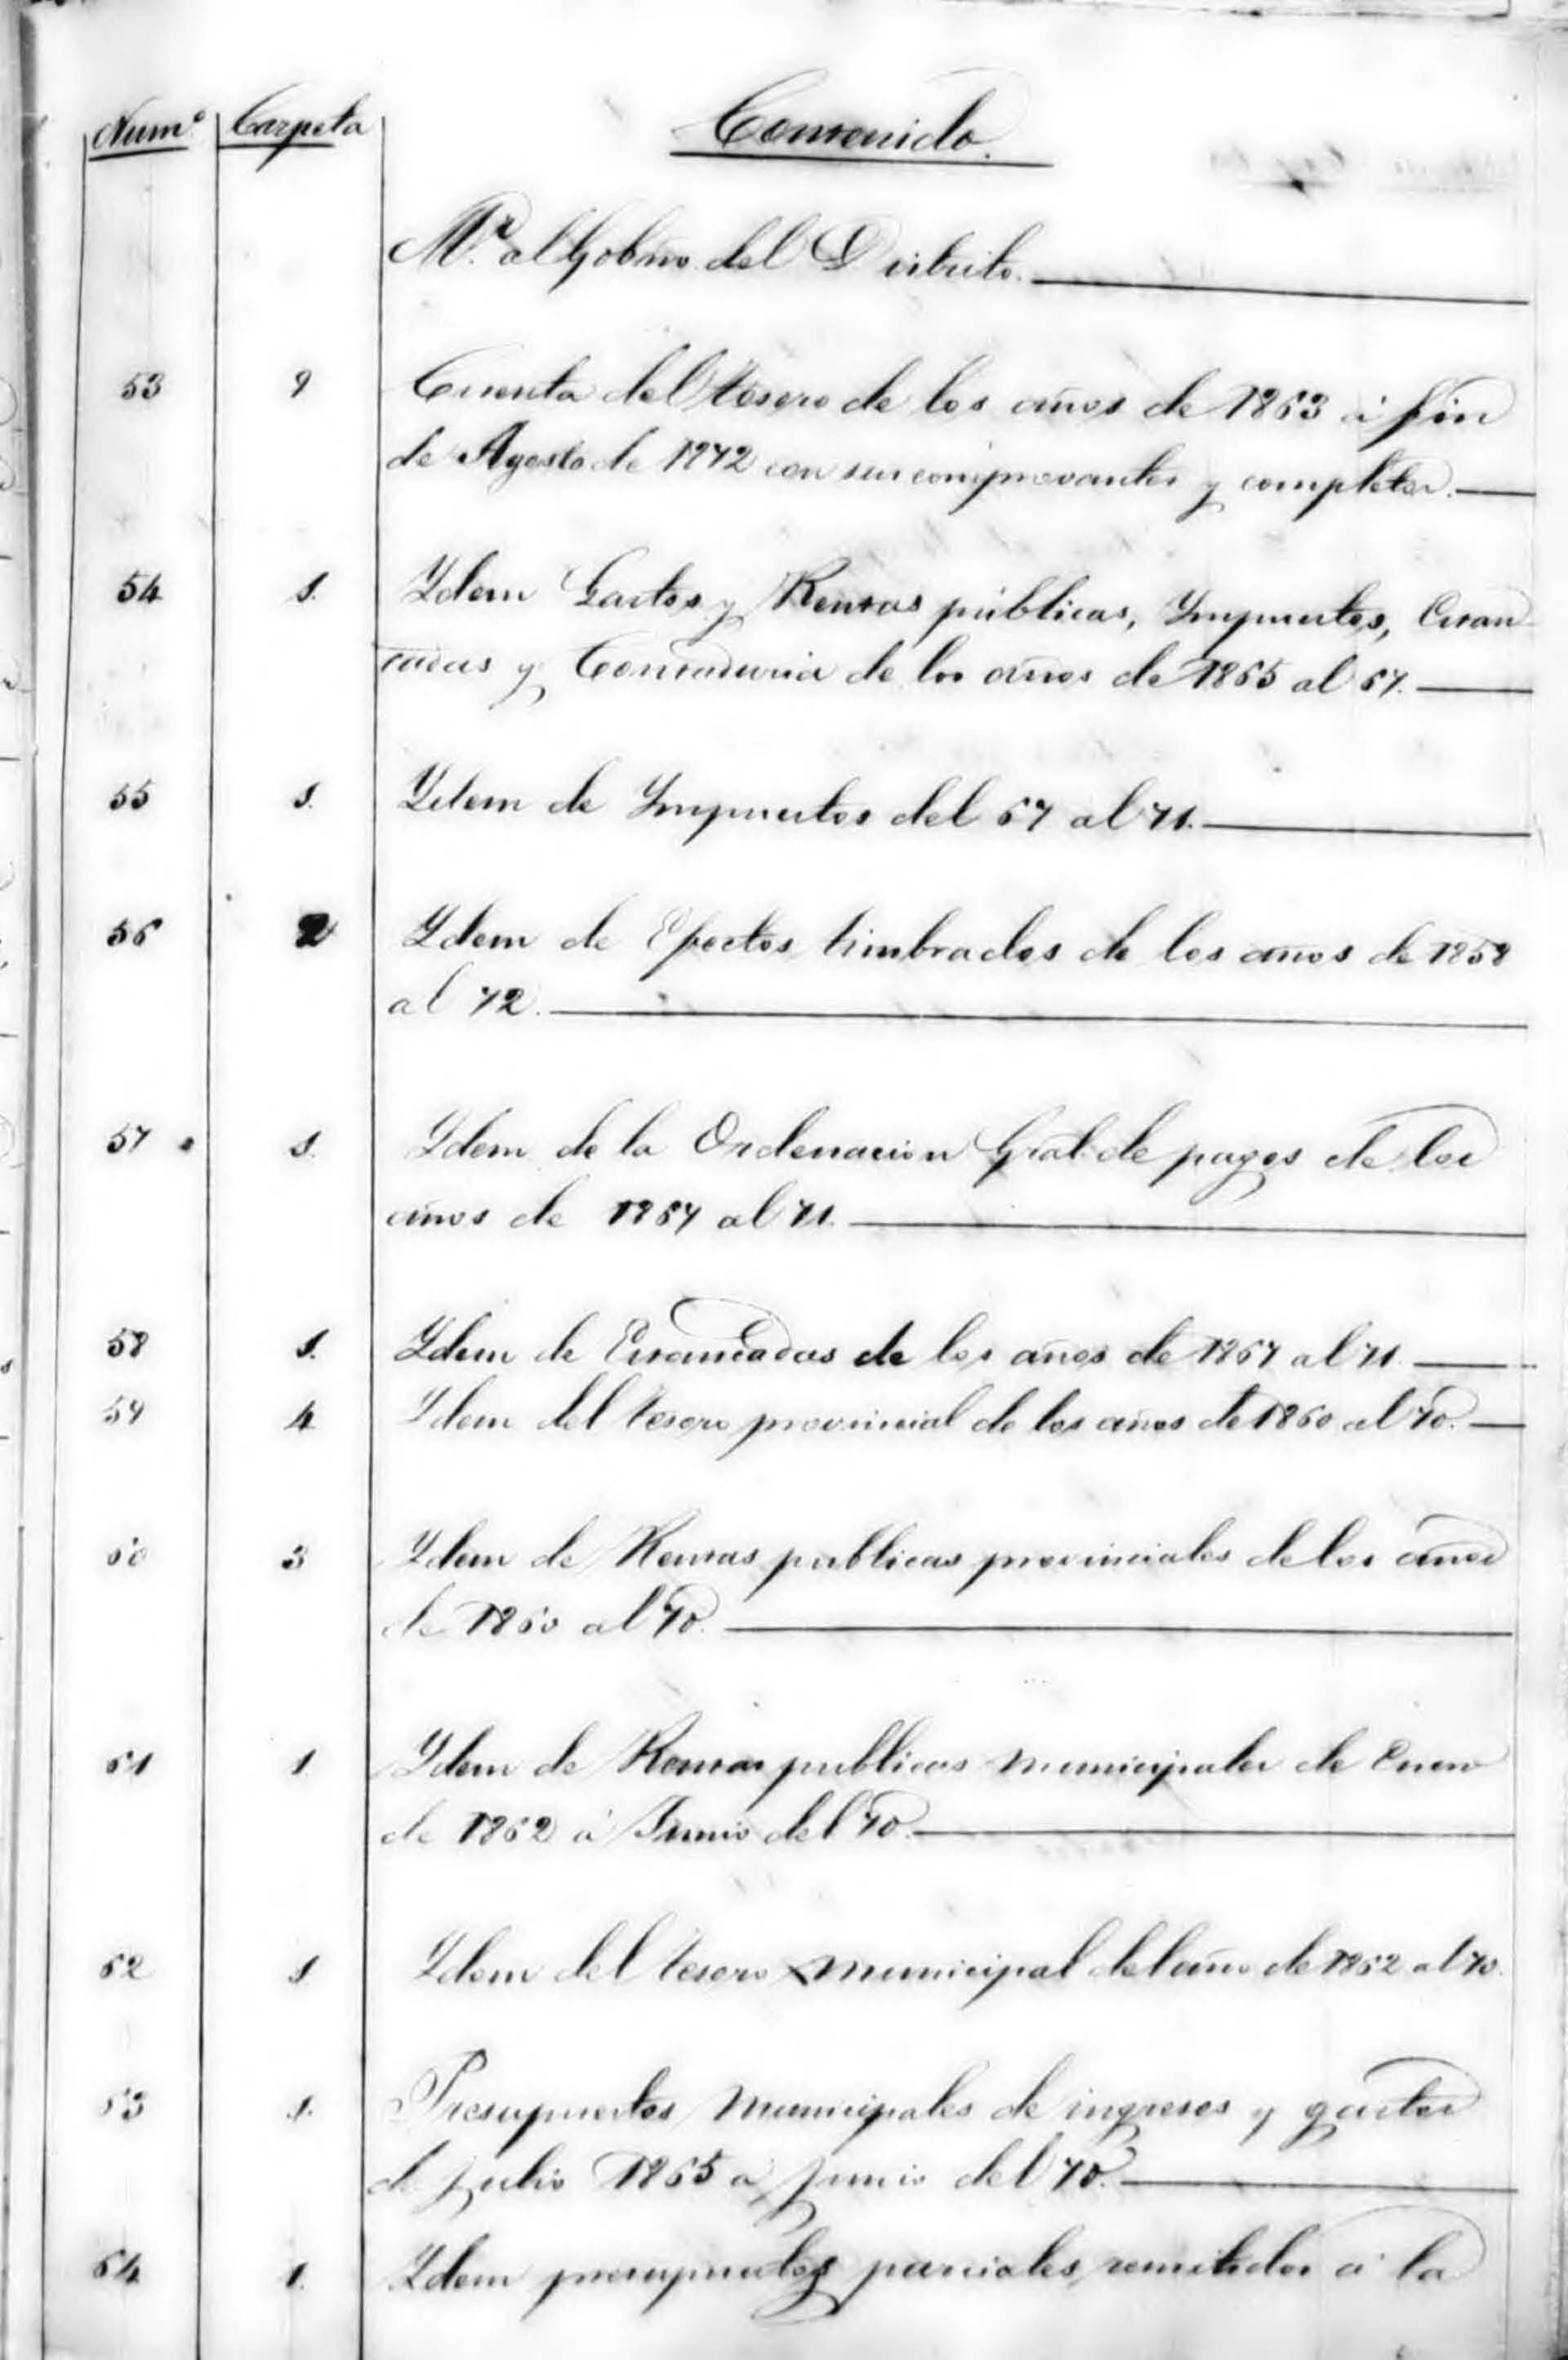 Num.º Carpeta Contenido.
M.ª al Gobno. del Distrito.
53 9 Cuenta del tesoro de los años de 1863 á fin
de Agosto de 1872 con sus comprovantes y completas.
54 1. Ydem Gastos y Rentas públicas, Ympuestos, Estan-
cadas y Contaduria de los años de 1865 al 67.
55 1. Ydem de Ympuestos del 67 al 71.
56 2 Ydem de Efectos timbrados de los años de 1858
al 72.
57 1. Ydem de la Ordenacion Gral. de pagos de los
años de 1867 al 71.
58 1. Ydem de Estancadas de los años de 1867 al 71.
59 4 Ydem del tesoro provincial de los años de 1860 al 70.
60 3 Ydem de Rentas publicas provinciales de los años
de 1860 al 70.
61 1 Ydem de Rentas publicas municipales de Enero
de 1862 á Junio del 70.
62 1 Ydem del tesoro municipal del año de 1862 al 70.
63 1. Presupuestos municipales de ingresos y gastos
de Julio 1865 a Junio del 70.
64 1. Ydem presupuestos parciales remitidos á la